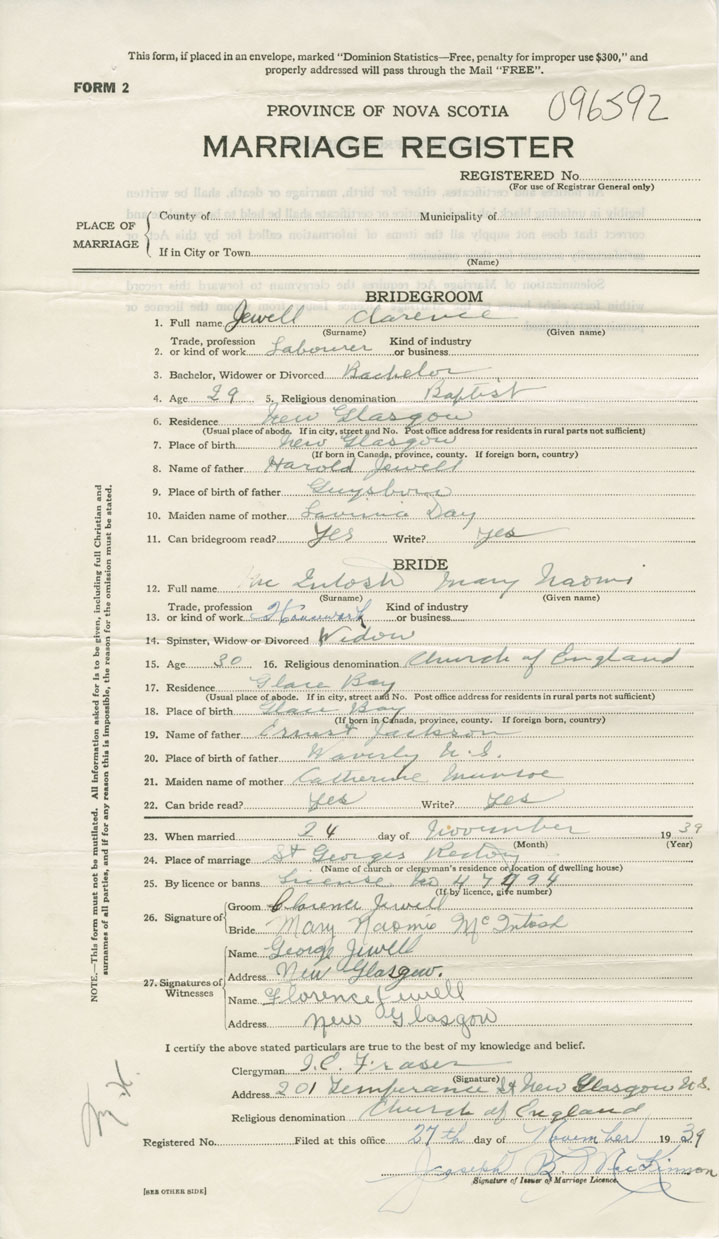 This form, if placed in an envelope, marked "Dominion Statistics—Free, penalty for improper use $300," and
properly addressed will pass through the Mail "FREE".
FORM 2
PROVINCE OF NOVA SCOTIA
096592
MARRIAGE REGISTER
REGISTERED No.
(For use of Registrar General only)
PLACE OF MARRIAGE
County of Municipality of
If in City or Town
(Name)
BRIDEGROOM
1. Full name Jewell Clarence
(Surname) (Given name)
2. Trade, profession or kind of work Labourer Kind of industry or business
3. Bachelor, Widower or Divorced Bachelor
4. Age 29 5. Religious denomination Baptist
6. Residence New Glasgow
(Usual place of abode. If in city, street and No. Post office address for residents in rural parts not sufficient)
7. Place of birth New Glasgow
(If born in Canada, province, county. If foreign born, country)
8. Name of father Harold Jewell
9. Place of birth of father Guysboro
10. Maiden name of mother Lavinia Day
11. Can bridegroom read? Yes Write? yes
BRIDE
12. Full name Mc Intosh Mary Naomi
(Surname) (Given name)
13. Trade, profession or kind of work Housework Kind of industry or business
14. Spinster, Widow or Divorced Widow
15. Age 30 16. Religious denomination Church of England
17. Residence Glace Bay
(Usual place of abode. If in city, street and No. Post office address for residents in rural parts not sufficient)
18. Place of birth Glace Bay
(If born in Canada, province, county. If foreign born, country)
19. Name of father Ernest Jackson
20. Place of birth of father Waverly N.S.
21. Maiden name of mother Catherine Munroe
22. Can bride read? yes Write? yes
23. When married 24 day of November 1939
(Month) (Year)
24. Place of marriage St Georges Rectory
(Name of church or clergyman's residence or location of dwelling house)
25. By licence or banns License no 47994
(If by licence, give number)
26. Signature of
Groom Clarence Jewell
Bride Mary Naomie McIntosh
27. Signatures of Witnesses
Name George Jewell
Address New Glasgow.
Name Florence Jewell
Address New Glasgow
I certify the above stated particulars are true to the best of my knowledge and belief.
Clergyman Fraser
(Signature)
Address 201 Temperance St New Glasgow N.S.
Religious denomination Church of England
Registered No. Filed at this office 27th day of November 1939
Joseph B. MacKinnon
Signature of Issuer of Marriage Licence
[SEE OTHER SIDE]
NOTE.—This form must not be mutilated. All information asked for is to be given, including full Christian and
surnames of all parties, and if for any reason this is impossible, the reason for the omission must be stated.